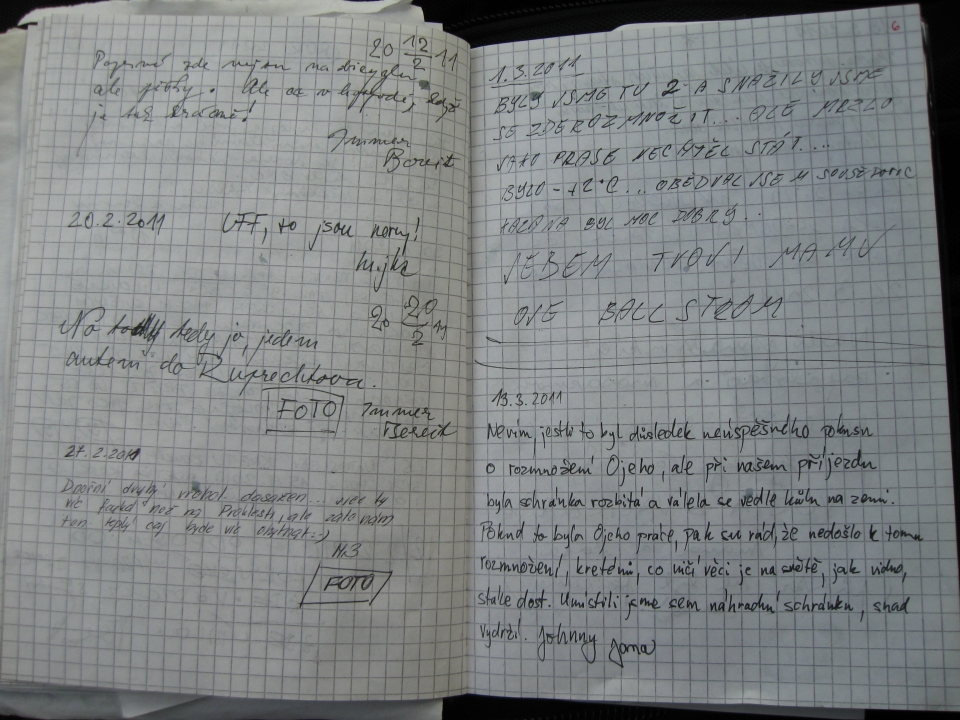 20 12/2 11
zde nejsu na bicyglu
ale pěšky. Ale co v listopadě, když
je tak krásně!
Immer
Bereit
20.2.2011 UFF, to jsou nervy!
hujka
20 20/2 11
No tedy já, jedem
autem do Ruprechtova.
FOTO Immer
Bereit
27.2.2011
Dnešní druhý vrchol dosažen...
víc foukal než na ale
ten teplý čaj bude víc chutnat :-)
Nr.3
FOTO
6
1.3.2011
BYLY JSME TU 2 A SNAŽILY JSME
SE ZDE ROZMNOŽIT... OLE MRZLO
JAKO PRASE NECHTĚL STÁT....
BYLO -12°C... OBĚDVAL JSEM
BYL MOC DOBRÝ..
JEBEM TVOJI MAMU
OJE BALLSTROM
13.3.2011
Nevím, jestli to byl důsledek neúspěšného pokusu
o rozmnožení Ojeho, ale při našem příjezdu
byla schránka rozbitá a válela se vedle kůlu na zemi.
Pokud to byla Ojeho práce, pak su rád, že nedošlo k tomu
rozmnožení, kreténů, co ničí věci je na světě, jak vidno,
stále dost. Umístili jsme sem náhradní schránku, snad
vydrží. Johnny Jana